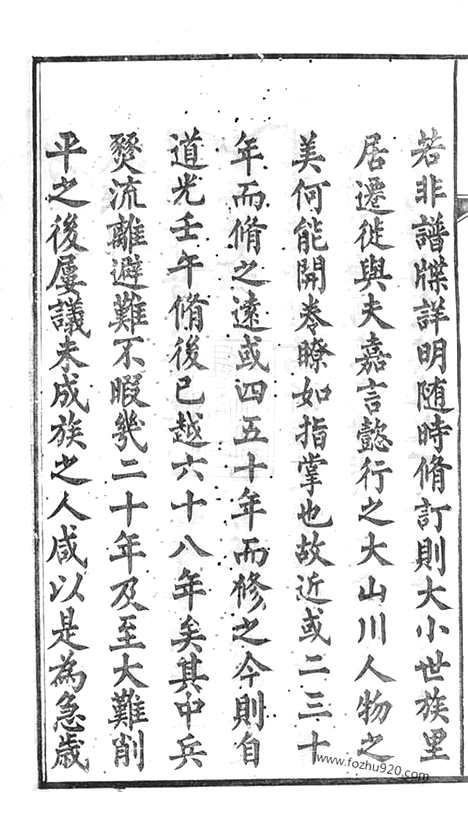 若非譜牒詳明随時脩訂則大小世族里
居遷徙與夫嘉言懿行之大山川人物之
美何能開卷瞭如指掌也故近或二三十
年而脩之遠或四五十年而修之今則自
道光壬午脩後已越六十八年矣其中兵
燹流離避難不暇幾二十年及至大難削
平之後屢議未成族之人咸以是為急歲
www.fozhu920.com